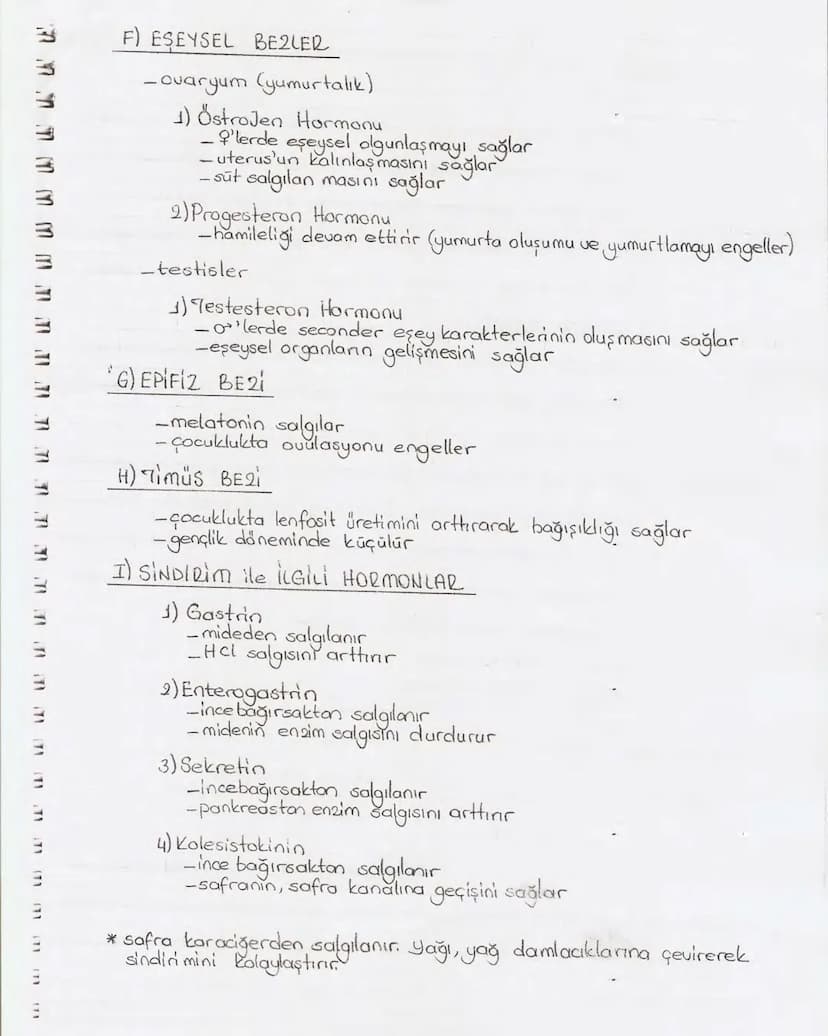 F) EŞEYSEL BEZLER
- ovaryum (yumurtalık)
1) ÖstroJen Hormonu
- ♀'lerde eşeysel olgunlaşmayı sağlar
- uterus'un kalınlaşmasını sağlar
- süt salgılan masını sağlar
2) Progesteron Hormonu
- hamileliği devam ettirir (yumurta oluşumu ve yumurtlamayı engeller)
- testisler
1) Testesteron Hormonu
- ♂'lerde seconder eşey karakterlerinin oluşmasını sağlar
- eşeysel organların gelişmesini sağlar
G) EPİFİZ BEZİ
- melatonin salgılar
- çocuklukta ovulasyonu engeller
H) TİMÜS BEZİ
- çocuklukta lenfosit üretimini arttırarak bağışıklığı sağlar
- gençlik döneminde küçülür
I) SİNDİRİM ile İLGİLİ HORMONLAR
1) Gastrin
- mideden salgılanır
- HCl salgısını arttırır
2) Enterogastrin
- ince bağırsaktan salgılanır
- midenin enzim salgısını durdurur
3) Sekretin
- incebağırsaktan salgılanır
- pankreastan enzim salgısını arttırır
4) Kolesistokinin
- ince bağırsaktan salgılanır
- safranın, safra kanalına geçişini sağlar
* safra karaciğerden salgılanır. Yağı, yağ damlacıklarına çevirerek
sindirimini kolaylaştırır.